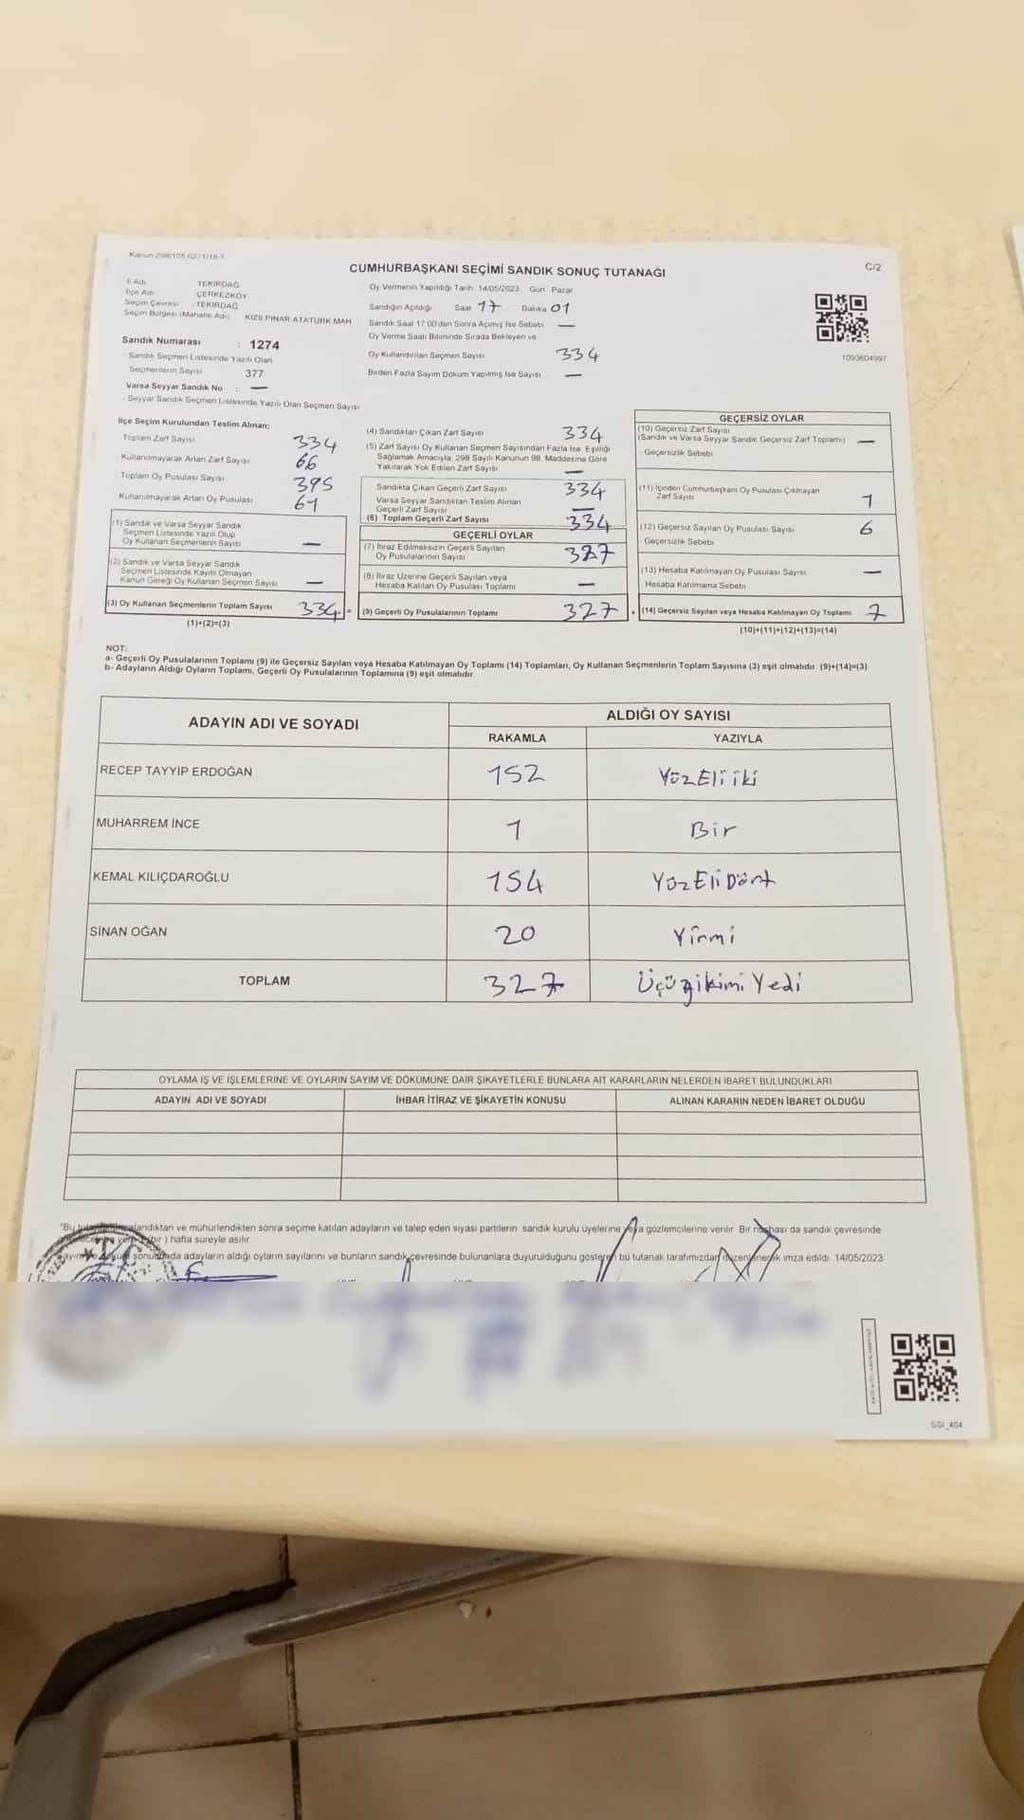 CUMHURBAŞKANI SEÇİMİ SANDIK SONUÇ TUTANAĞI
C/2
İl Adı TEKİRDAĞ
İlçe Adı ÇERKEZKÖY
Seçim Çevresi TEKİRDAĞ
Seçim Bölgesi (Mahalle Adı) KIZILPINAR ATATÜRK MAH
Sandık Numarası : 1274
Sandık Seçmen Listesinde Yazılı Olan
Seçmenlerin Sayısı 377
Varsa Seyyar Sandık No : —
Seyyar Sandık Seçmen Listesinde Yazılı Olan Seçmen Sayısı
Oy Vermenin Yapıldığı Tarih 14/05/2023 Gün Pazar
Sandığın Açıldığı Saat 17 Dakika 01
Sandık Saat 17:00'den Sonra Açılmış İse Sebebi —
Oy Verme Saati Bitiminde Sırada Bekleyen ve
Oy Kullandırılan Seçmen Sayısı 334
Birden Fazla Sayım Döküm Yapılmış İse Sayısı —
1093604997
İlçe Seçim Kurulundan Teslim Alınan;
Toplam Zarf Sayısı 334
Kullanılmayarak Artan Zarf Sayısı 66
Toplam Oy Pusulası Sayısı 395
Kullanılmayarak Artan Oy Pusulası 61
(1) Sandık ve Varsa Seyyar Sandık
Seçmen Listesinde Yazılı Olup
Oy Kullanan Seçmenlerin Sayısı —
(2) Sandık ve Varsa Seyyar Sandık
Seçmen Listesinde Kayıtlı Olmayan
Kanun Gereği Oy Kullanan Seçmen Sayısı —
(3) Oy Kullanan Seçmenlerin Toplam Sayısı 334 =
(1)+(2)=(3)
(4) Sandıktan Çıkan Zarf Sayısı 334
(5) Zarf Sayısı Oy Kullanan Seçmen Sayısından Fazla İse Eşitliği
Sağlamak Amacıyla 298 Sayılı Kanunun 98. Maddesine Göre
Yakılarak Yok Edilen Zarf Sayısı —
Sandıkta Çıkan Geçerli Zarf Sayısı 334
Varsa Seyyar Sandıktan Teslim Alınan
Geçerli Zarf Sayısı —
(6) Toplam Geçerli Zarf Sayısı 334
GEÇERLİ OYLAR
(7) İtiraz Edilmeksizin Geçerli Sayılan
Oy Pusulalarının Sayısı 327
(8) İtiraz Üzerine Geçerli Sayılan veya
Hesaba Katılan Oy Pusulası Toplamı —
(9) Geçerli Oy Pusulalarının Toplamı 327 +
GEÇERSİZ OYLAR
(10) Geçersiz Zarf Sayısı
(Sandık ve Varsa Seyyar Sandık Geçersiz Zarf Toplamı) —
Geçersizlik Sebebi
(11) İçinden Cumhurbaşkanı Oy Pusulası Çıkmayan
Zarf Sayısı 1
(12) Geçersiz Sayılan Oy Pusulası Sayısı 6
Geçersizlik Sebebi
(13) Hesaba Katılmayan Oy Pusulası Sayısı —
Hesaba Katılmama Sebebi
(14) Geçersiz Sayılan veya Hesaba Katılmayan Oy Toplamı 7
(10)+(11)+(12)+(13)=(14)
NOT:
a- Geçerli Oy Pusulalarının Toplamı (9) ile Geçersiz Sayılan veya Hesaba Katılmayan Oy Toplamı (14) Toplamları, Oy Kullanan Seçmenlerin Toplam Sayısına (3) eşit olmalıdır. (9)+(14)=(3)
b- Adayların Aldığı Oyların Toplamı, Geçerli Oy Pusulalarının Toplamına (9) eşit olmalıdır.
ADAYIN ADI VE SOYADI
ALDIĞI OY SAYISI
RAKAMLA YAZIYLA
RECEP TAYYİP ERDOĞAN 152 YüzElliiki
MUHARREM İNCE 1 Bir
KEMAL KILIÇDAROĞLU 154 YüzElliDört
SİNAN OĞAN 20 Yirmi
TOPLAM 327 Üçüzyikimi Yedi
OYLAMA İŞ VE İŞLEMLERİNE VE OYLARIN SAYIM VE DÖKÜMÜNE DAİR ŞİKAYETLERLE BUNLARA AİT KARARLARIN NELERDEN İBARET BULUNDUKLARI
ADAYIN ADI VE SOYADI İHBAR İTİRAZ VE ŞİKAYETİN KONUSU ALINAN KARARIN NEDEN İBARET OLDUĞU
"Bu imzalandıktan ve mühürlendikten sonra seçime katılan adayların ve talep eden siyasi partilerin sandık kurulu üyelerine veya gözlemcilerine verilir. Bir nüshası da sandık çevresinde
bir) hafta süreyle asılır.
sonucunda adayların aldığı oyların sayılarını ve bunların sandık çevresinde bulunanlara duyurulduğunu gösteren bu tutanak tarafımızdan düzenlenerek imza edildi. 14/05/2023
SSI_404